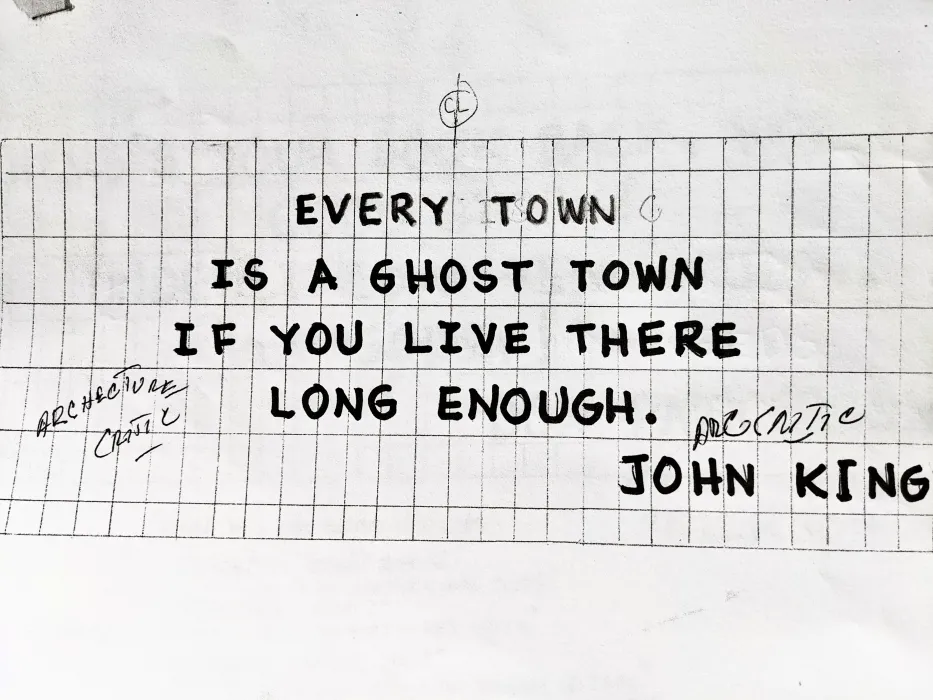 CL
EVERY TOWN
IS A GHOST TOWN
IF YOU LIVE THERE
LONG ENOUGH.
ARCHECTURE
CRITIC
ARC CRITIC
JOHN KING